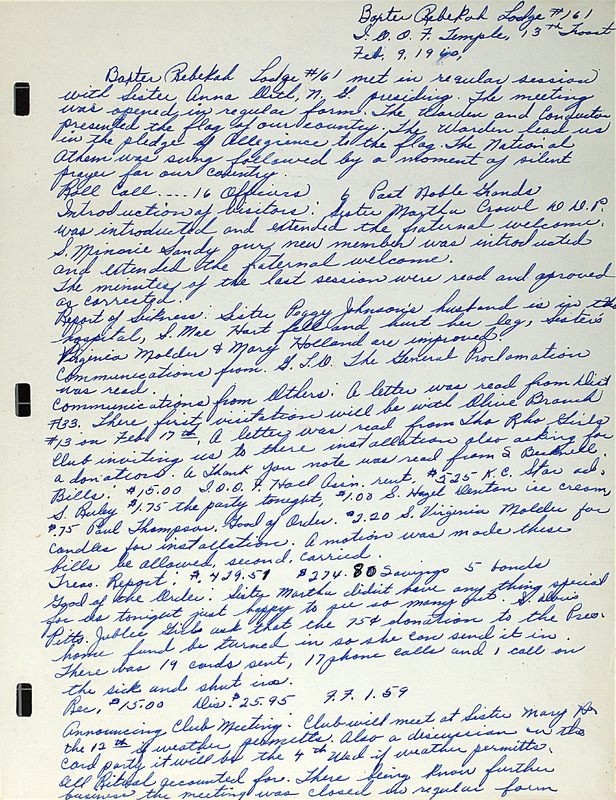 Baxter Rebekah Lodge #161
I.O.O.F. Temple, 13th Troost
Feb. 9, 1960,
Baxter Rebekah Lodge #161 met in regular session
with Sister Anna Dith, N.G. presiding. The meeting
was opened in regular form. The Warden and Conductor
presented the flag of our country. The Warden lead us
in the pledge of Allegrence to the flag. The National
Athem was sung followed by a moment of silent
prayer for our country.
Roll Call .... 16 Officers 6 Past Noble Grands
Introduction of Visitors: Sister Martha Crowl D.D.P
was introduced and extended the fraternal welcome.
S. Minonie Sandy our new member was introduced
and extended the fraternal welcome.
The minutes of the last session were read and aproved
as corrected.
Report of Sickness: Sister Peggy Johnson's husband is in the
hospital, S. Mae Hart fell and hurt her leg, Sisters
Virginia Molder & Mary Holland are improved.
Communications from G.I.O. The General Proclamation
was read.
Communications from Others: A letter was read from Dist
#33. There first visitation will be with Olive Branch
#13 on Feb. 17th. A letter was read from Tho Rho Girls
Club inviting us to there installation also asking for
a donation. A Thank you note was read from S Becknell.
Bills: $15.00 I.O.O.F. Hall Assn. rent, $5.25 K.C. Star ad.
S. Ruby $1.75 the party tonight, $1.00 S. Hazel Denton ice cream
$.75 Paul Thompson, Good of Order. $2.20 S. Virginia Molder for
candles for installation. A motion was made these
bills be allowed, second, carried.
Treas. Report: $429.51 $274.80 Savings 5 bonds
Good of the Order: Sister Martha didit have any thing special
for us tonight just happy to see so many out. S. Doris
Pitts. Jublee Girls ask that the 75¢ donation to the Pres.
home fund be turned in so she can send it in.
There was 19 cards sent, 17 phone calls and 1 call on
the sick and shut ins.
Rec. $15.00 Dis. $25.95 F.F. 1.59
Announcing Club Meeting: Club will meet at Sister Mary H.
the 12th if weather permitts. Also a discussion on the
Card party it will be the 4th Wed if weather permitts.
All Ritual accounted for. There being know further
business the meeting was closed in regular form